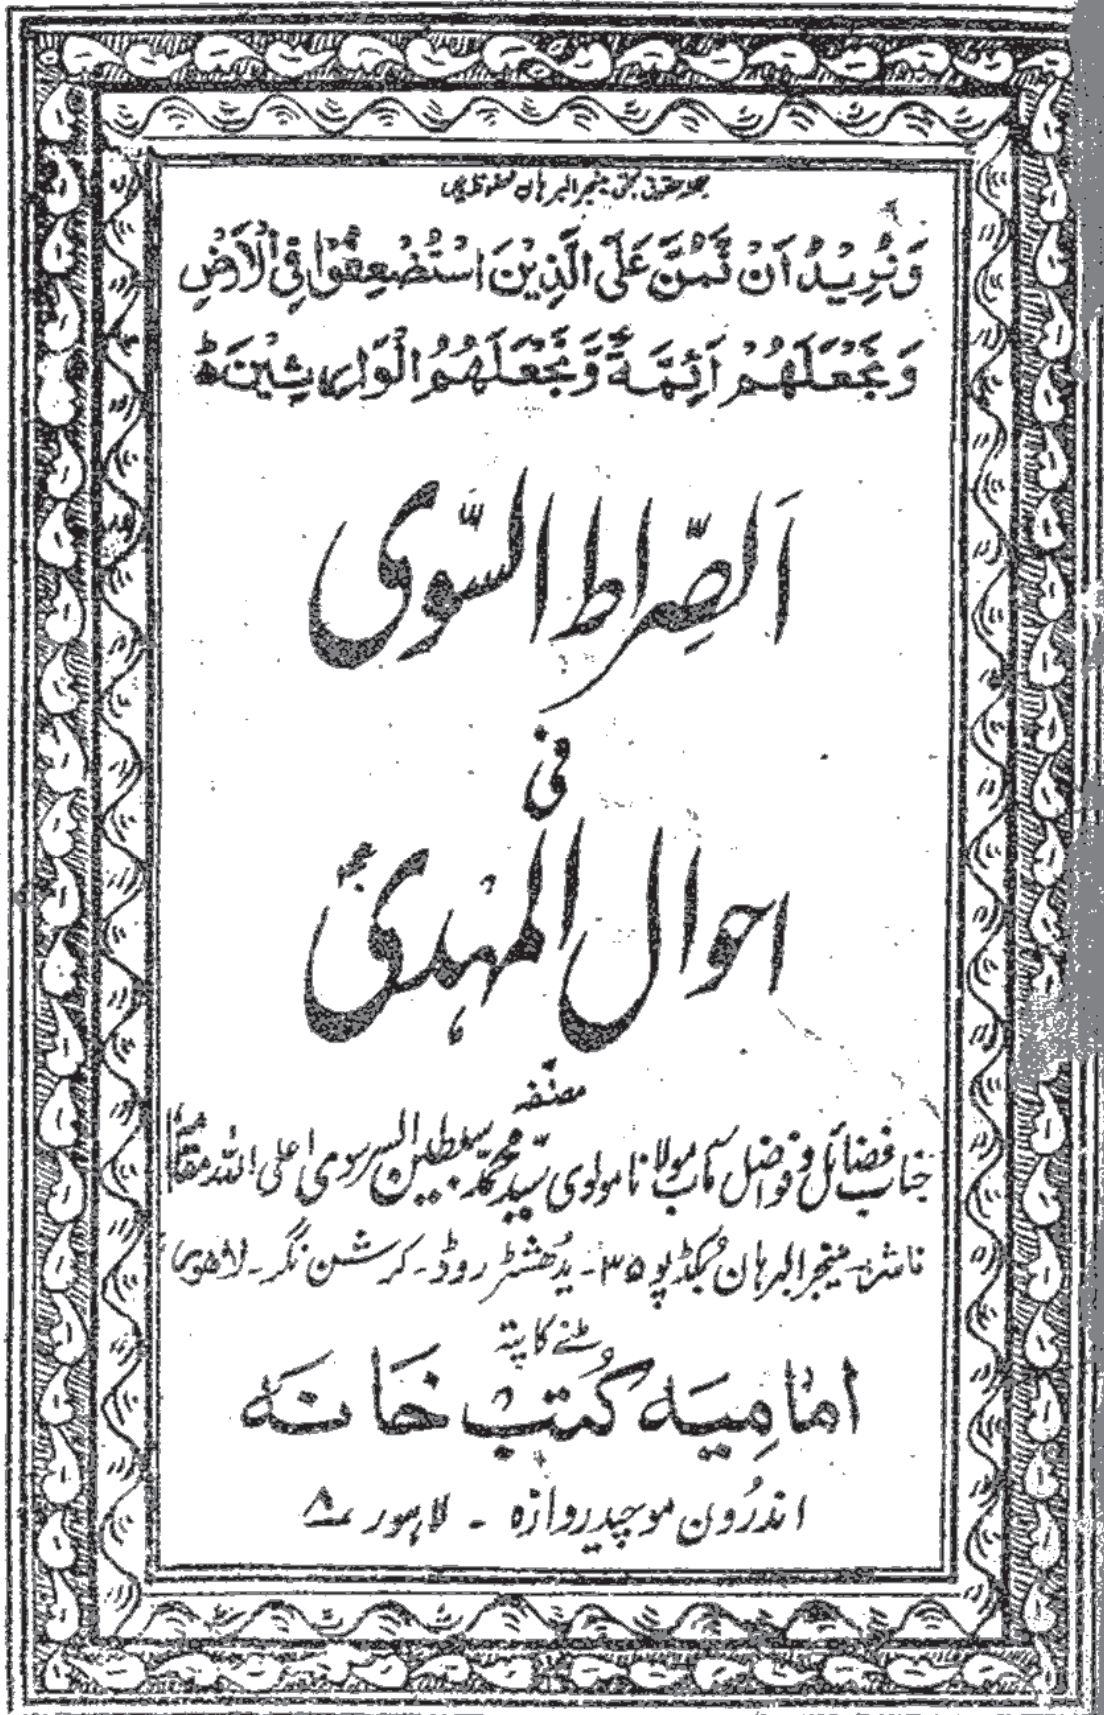 جملہ حقوق بحق منیجر البرہان محفوظ ہیں
وَنُرِیْدُ اَنْ نَّمُنَّ عَلَی الَّذِیْنَ اسْتُضْعِفُوْا فِی الْاَرْضِ
وَنَجْعَلَهُمْ اَئِمَّةً وَّنَجْعَلَهُمُ الْوَارِثِیْنَ ط
اَلصِّراط السَّوی
فی
احوال المہدیؑ
مصنفہ
جناب فضائل و فواضل مآب مولانا مولوی سیّد محمّد سبطین السرسوی اعلی اللہ مقامہٗ
ناشر۔ منیجر البرہان بُکڈپو ۳۵۔ یدھشٹر روڈ۔ کرشن نگر۔ لاہور
ملنے کا پتہ
امامِیَہ کُتب خَانَہ
اندرُون موچیدروازہ ۔ لاہور ۸